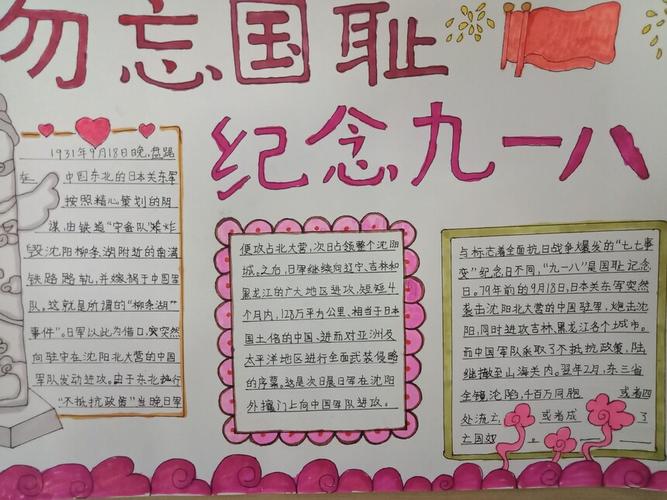 勿忘国耻
纪念九一八
1931年9月18日晚,盘踞
在 中国东北的日本关东军
按照精心策划的阴
谋,由铁道“守备队”炸
毁沈阳柳条湖附近的南满
铁路路轨,并嫁祸于中国军
队,这就是所谓的“柳条湖”
事件”。日军以此为借口,突然
向驻守在沈阳北大营的中国
军队发动进攻。由于东北执行
“不抵抗政策”当晚日军
便攻占北大营,次日占领整个沈阳
城。之后,日军继续向辽宁、吉林和
黑龙江的广大地区进攻,短短4
个月内,128万平方公里、相当于日本
国土3倍的中国、进而对亚洲及
太平洋地区进行全面武装侵略
的序幕。这是次日是日军在沈阳
外攘门上向中国军队进攻。
与标志着全面抗日战争爆发的“七七事
变”纪念日不同,“九一八”是国耻记念
日。79年前的9月18日,日本关东军突然
袭击沈阳北大营的中国驻军,炮击沈
阳,同时进攻吉林、黑龙江各个城市。
而中国军队采取了不抵抗政策,陆
继撤至山海关内。翌年2月,东三省
全镜沦陷,4百万同胞 或者四
处流亡 或者成 了
亡国奴。